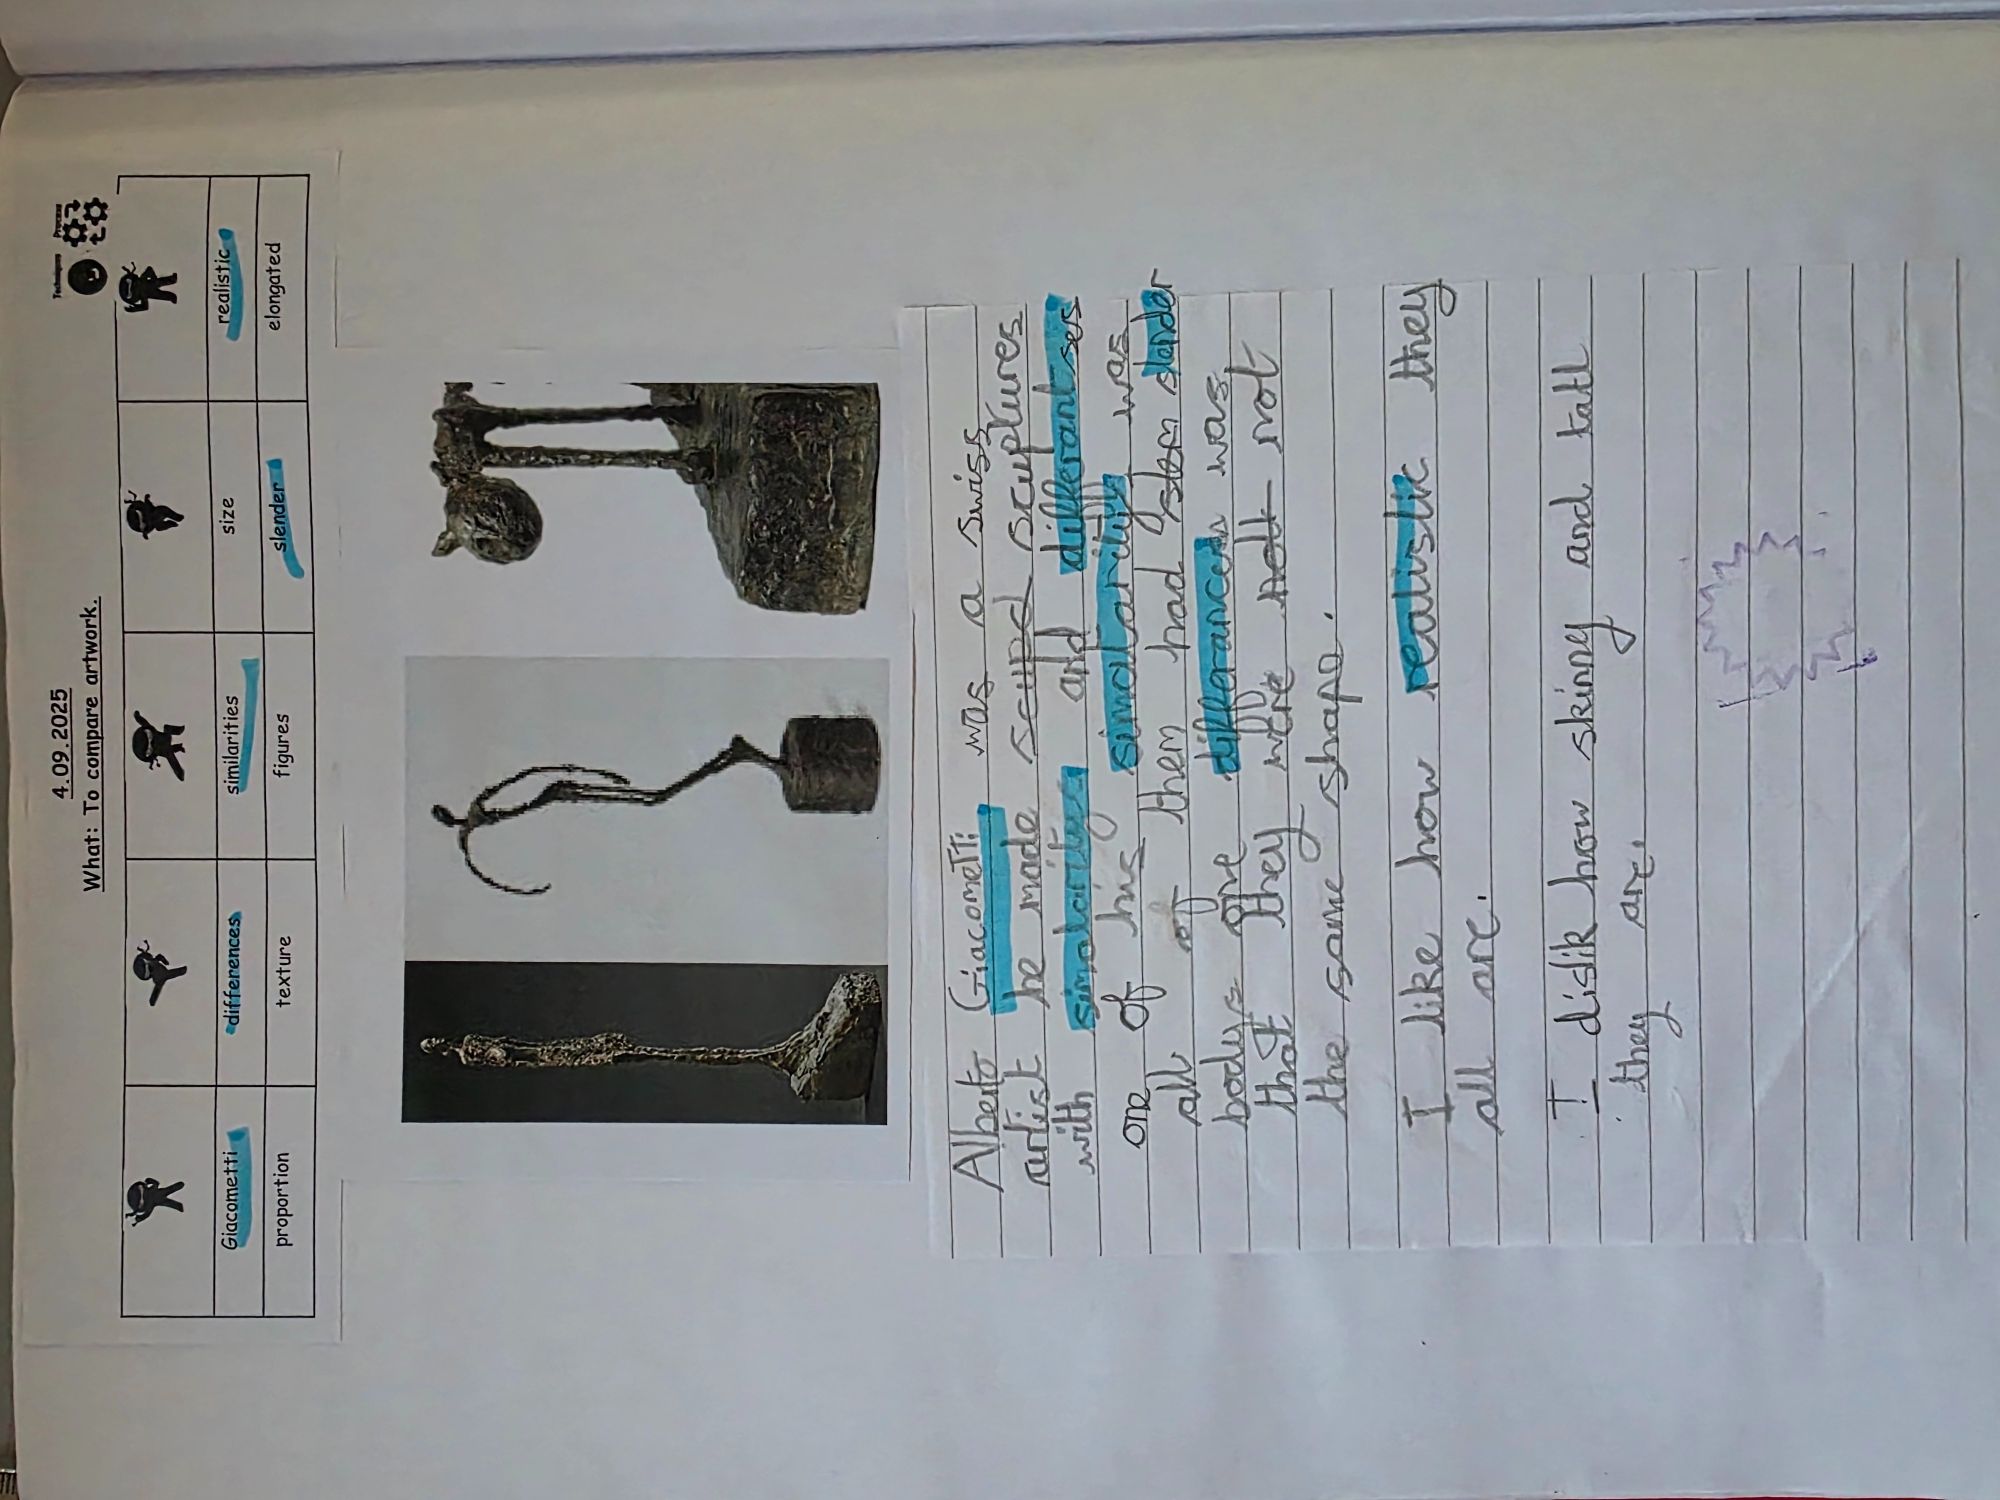 4.09.2025
What: To compare artwork.
Techniques Process
Giacometti differences similarities size realistic
proportion texture figures slender elongated
Alberto Giacometti was a swiss
artist he made scupd scuptures
with simalaritys and differant ses
one of his simalaritify was
all of them had slem slender
bodys one differances was
that they were not not
the same shape.
I like how realistic they
all are.
I dislik how skinny and tall
they are.